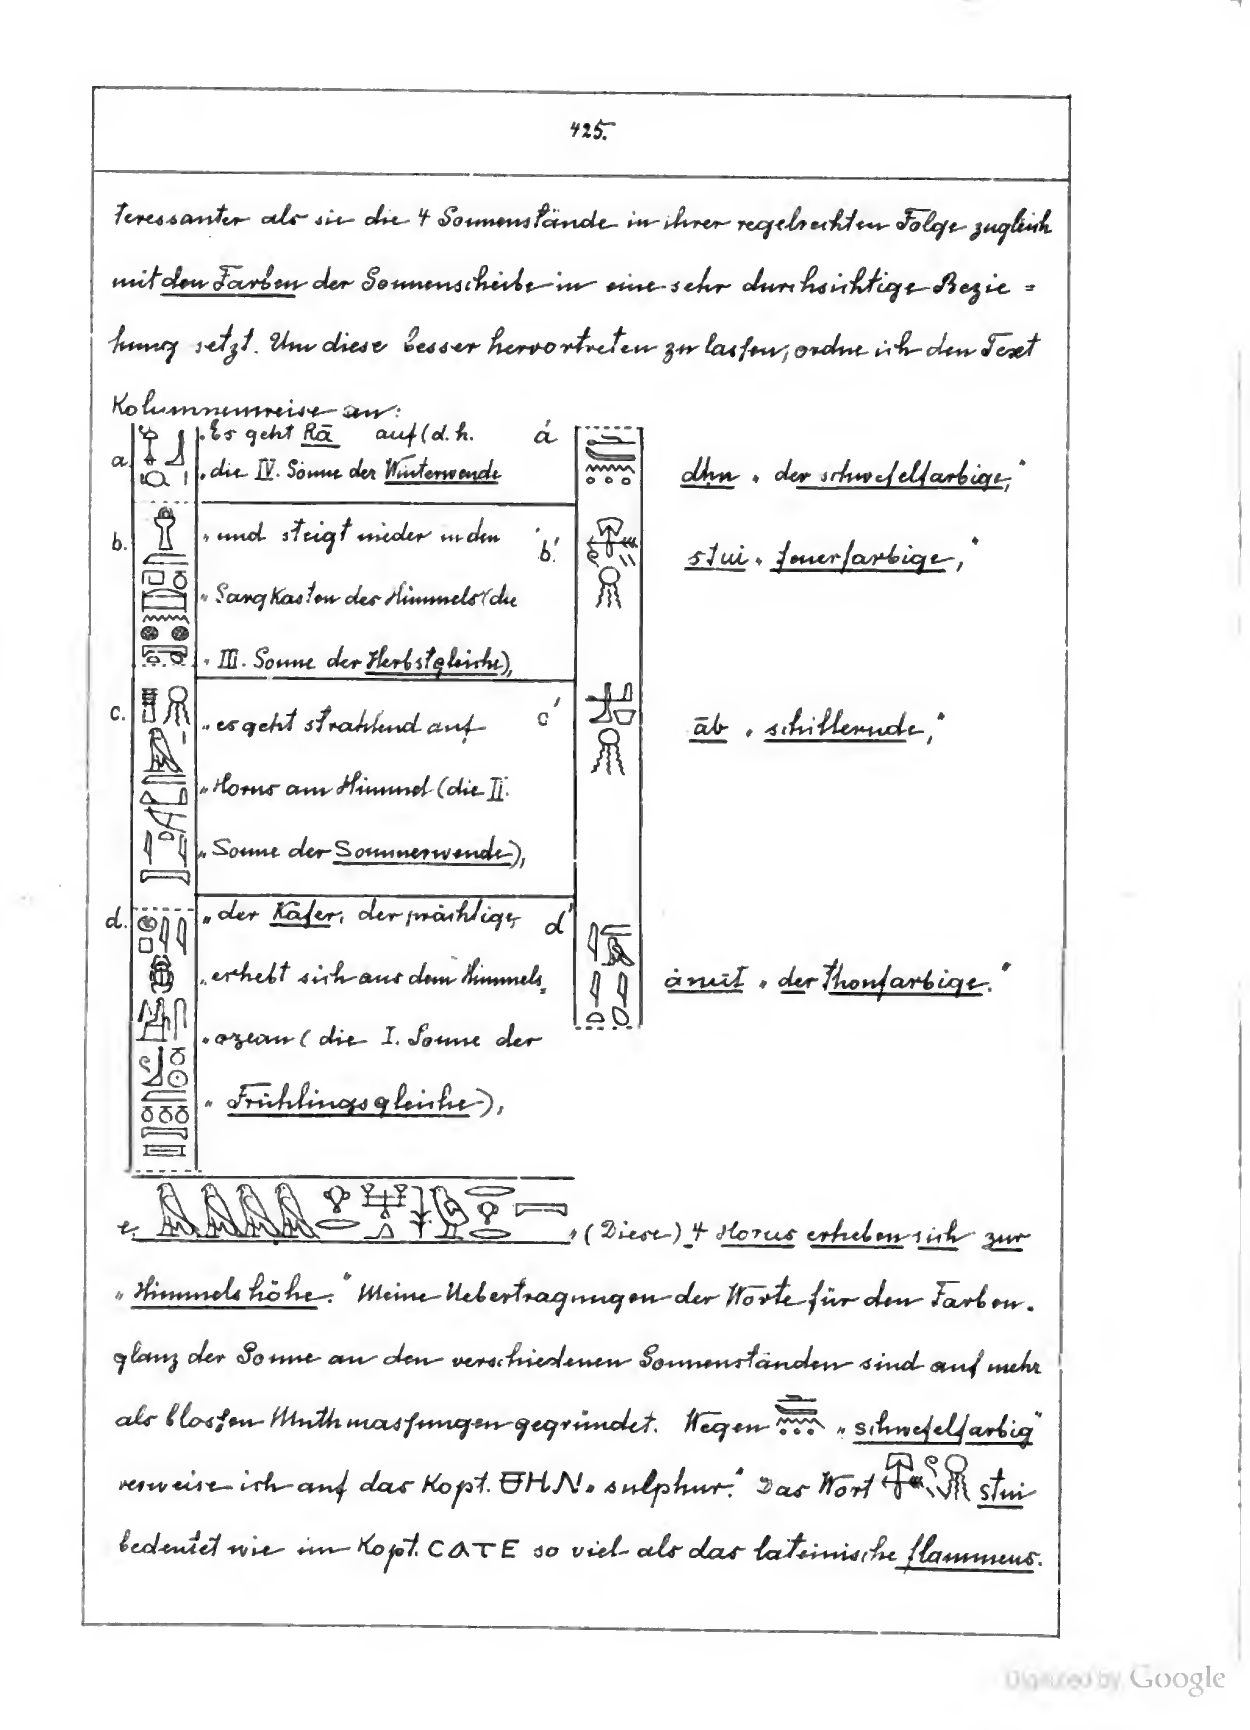 425.
teressanter als sie die 4 Sonnenstände in ihrer regelrechten Folge zugleich
mit den Farben der Sonnenscheibe in eine sehr durchsichtige Bezie=
hung setzt. Um diese besser hervortreten zu lassen, ordne ich den Text
Kolumnenweise an:
a. „Es geht Rā auf (d.h.
„die IV. Sonne der Winterwende
á dḥn „der schwefelfarbige,"
b. „und steigt nieder in den
„Sargkasten des Himmels (die
„III. Sonne der Herbstgleiche),
b' stui „feuerfarbige,"
c. „es geht strahlend auf
„Horus am Himmel (die II.
„Sonne der Sommerwende),
c' āb „schillernde,"
d. „der Käfer, der prächtige,
„erhebt sich aus dem Himmels„
„ozean (die I. Sonne der
„Frühlingsgleiche),
d' „der Thonfarbige."
e. „(Diese) 4 Horus erheben sich zur
„Himmelshöhe." Meine Uebertragungen der Worte für den Farben-
glanz der Sonne an den verschiedenen Sonnenständen sind auf mehr
als blossen Muthmassungen gegründet. Wegen „schwefelfarbig"
verweise ich auf das Kopt. ΘΗΝ „sulphur." Das Wort stui
bedeutet wie im Kopt. CATE so viel als das lateinische flammeus.
Digitized by Google